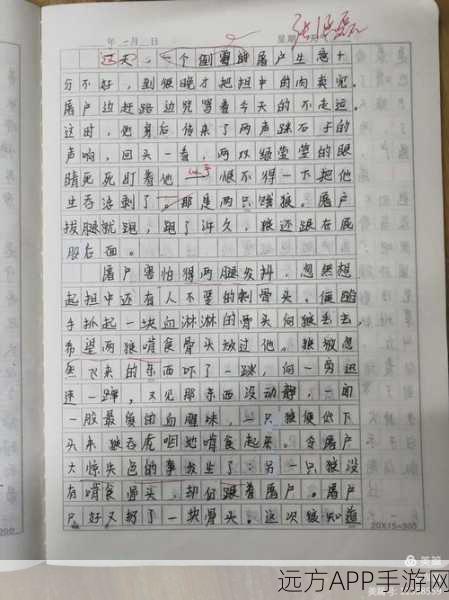 年 月 日 星期
这天，一个倒霉的屠户生意十
分不好，到很晚才把担中的肉卖完。
屠户边赶路边咒骂着今天的不走运。
这时，他身后传来了两声踩石子的
声响，回头一看，两双绿莹莹的眼
睛死死盯着他，恨不得一下把他
生吞活剥了。那是两只饿狼。屠户
拔腿就跑，跑了许久，狼还跟在屁
股后面。
屠户害怕得两腿发抖，忽然想
起担中还有人不要的剩骨头，便随
手抓起一块血淋淋的骨头向狼丢去，
希望两狼啃食骨头放过他。狼被忽
然飞来的东西吓了一跳，向一旁迅
速一蹿，又见那东西没动静，一闻
一股最爱的血腥味，一只狼便低下
头来狼吞虎咽地啃食起来。令屠户
大惊失色的事发生了：另一只狼没
有啃食骨头，却仍跟着屠户。屠户
只好又扔了一块骨头。这次狼知道
20X15=300
美篇
美篇号:
远方APP手游网